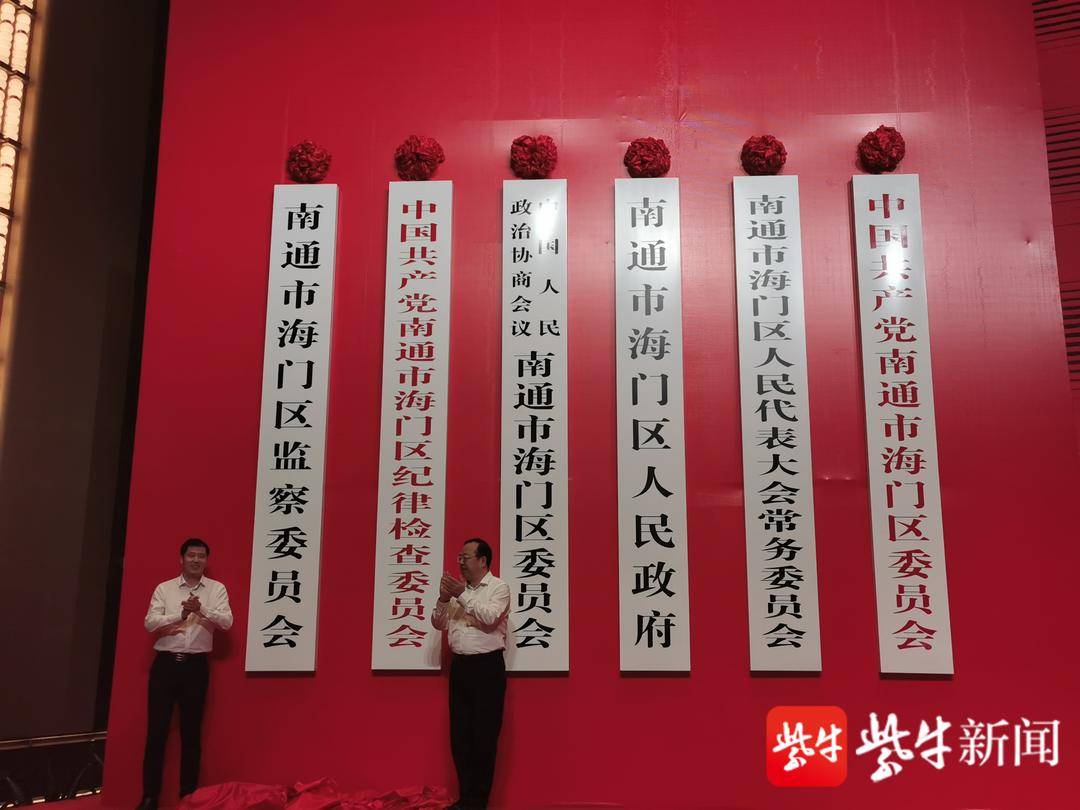 南通市海门区监察委员会
中国共产党南通市海门区纪律检查委员会
中国人民
政治协商会议
南通市海门区委员会
南通市海门区人民政府
南通市海门区人民代表大会常务委员会
中国共产党南通市海门区委员会
紫牛 紫牛新闻